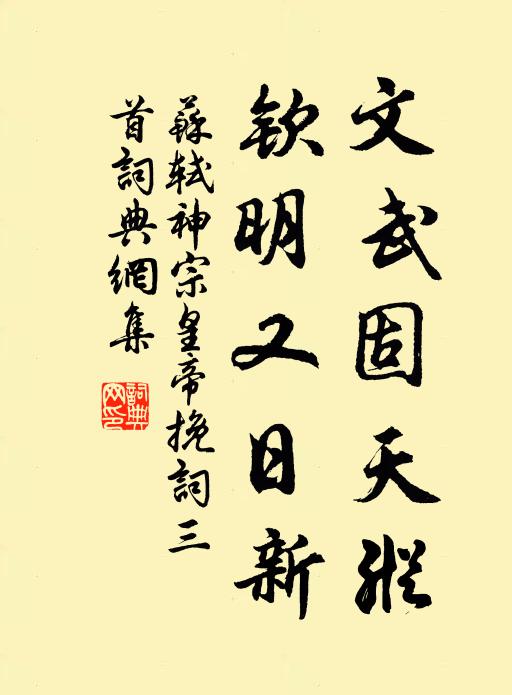 文武固天縱
欽明又日新
蘇軾神宗皇帝挽詞三
首詞典網集
詞典網印